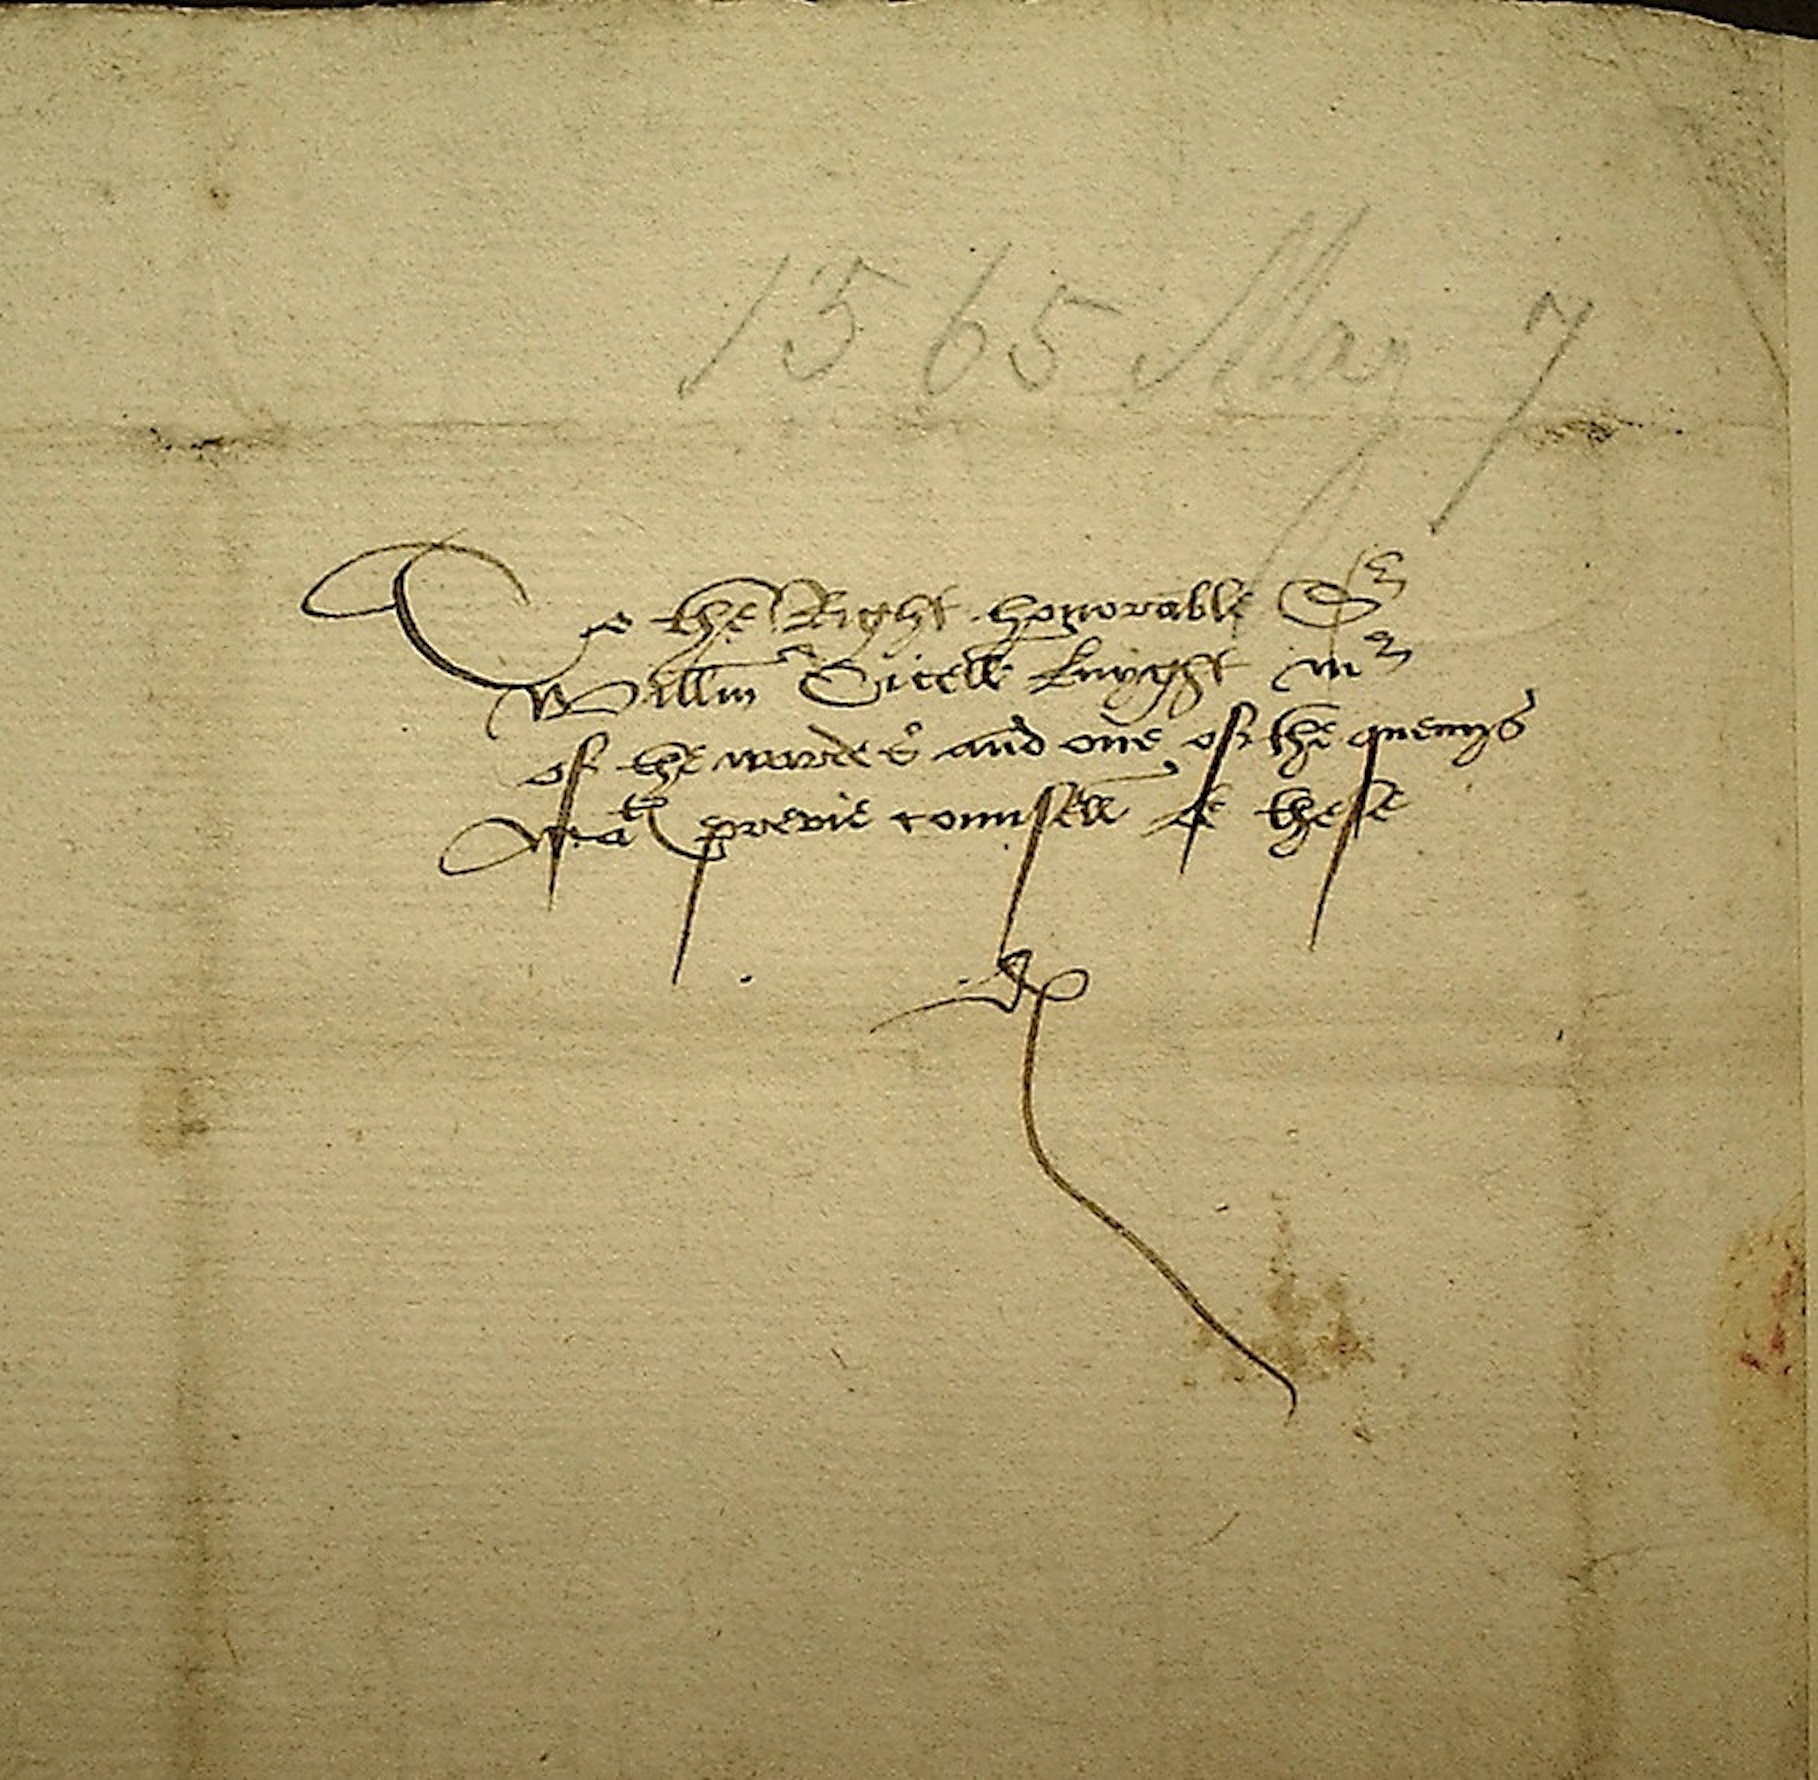 1565 May 7
To the Right honorable Sr
Willm Cicell knyght mr
of the wardes and one of the quenys
Matis previe counsell be these
dd